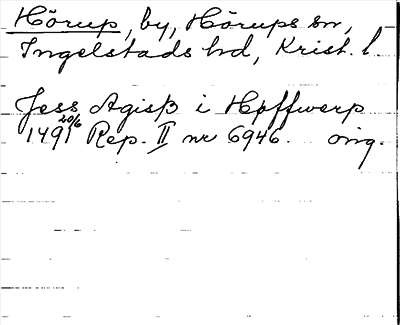 Hörup, by, Hörups sn,
Ingelstads hd, Krist. l.
Jess Agisß i Hoffwerp
1491 20/6 Rep. II nr 6946. orig.